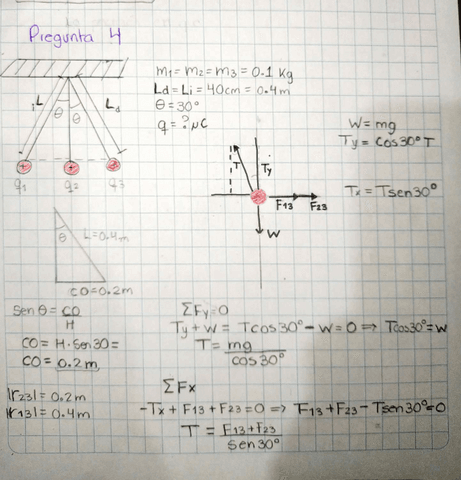 Pregunta 4
m1 = m2 = m3 = 0.1 Kg
Ld = Li = 40cm = 0.4m
θ = 30°
q = ? μC
iL
Ld
θ
θ
q1
q2
q3
W = mg
Ty = cos30° T
Tx = Tsen30°
T
Ty
F13
F23
W
θ
L=0.4m
CO=0.2m
Sen θ = CO
H
CO = H · Sen 30 =
CO = 0.2 m
|r23| = 0.2m
|r13| = 0.4m
ΣFy = 0
Ty + W = Tcos30° - W = 0 => Tcos30° = W
T = mg
cos30°
ΣFx
-Tx + F13 + F23 = 0 => F13 + F23 - Tsen30° = 0
T = F13 + F23
Sen 30°